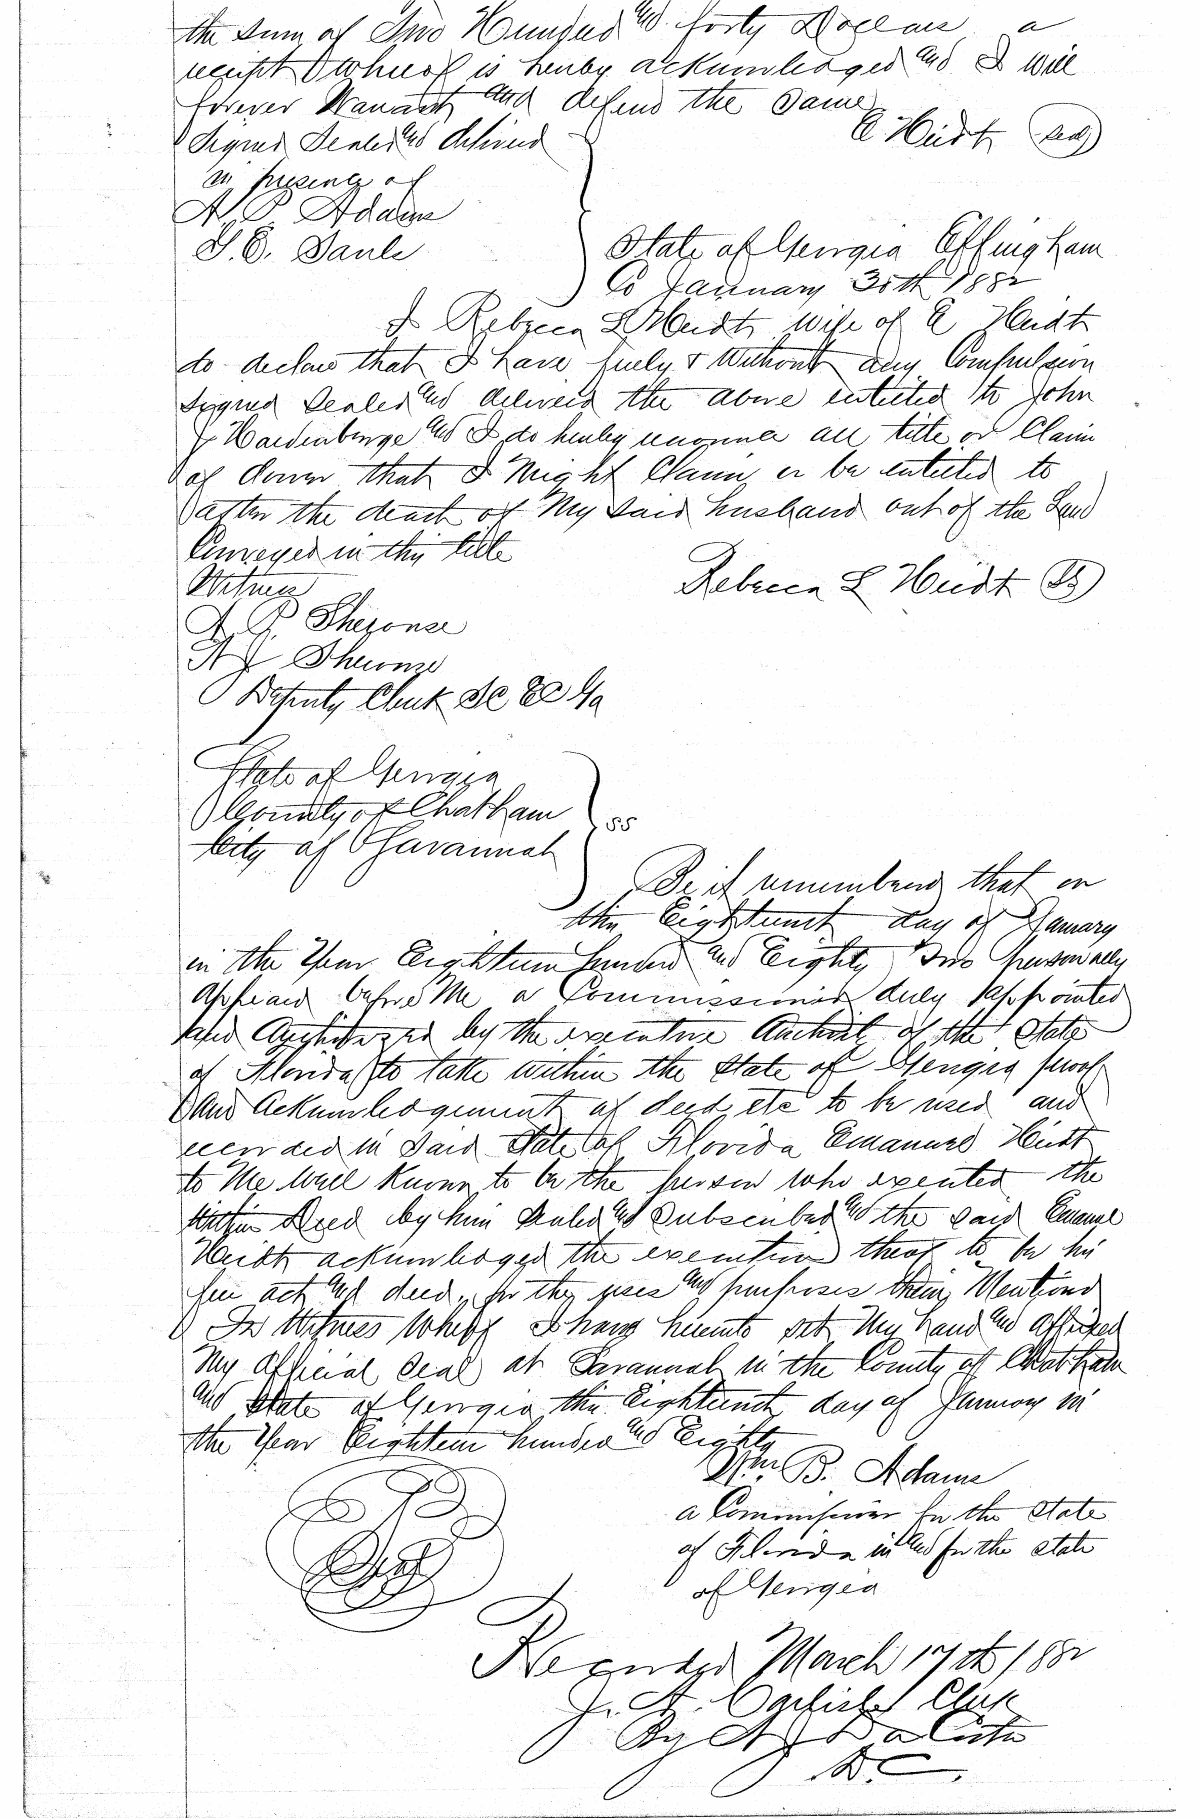 the sum of Two Hundred and forty Dollars a
receipt Whereof is hereby acknowledged and I will
forever Warrant and defend the same
E Heidt (seal)
Signed Sealed and delivered
in presence of
A. P. Adams
State of Georgia Effingham
Co January 30th 1882
I Rebecca L Heidt wife of E Heidt
do declare that I have freely & Without any Compulsion
signed sealed and delivered the above entitled to John
and I do hereby renounce all title or Claim
of dower that I Might Claim or be entitled to
after the death of My said husband out of the Land
Conveyed in this title
Rebecca L Heidt
Witness
Deputy Clerk SC EC Ga
State of Georgia
County of Chatham
ss
City of Savannah
Be it remembered that on
this Eighteenth day of January
in the Year Eighteen hundred and Eighty Two personally
Appeared before Me a Commissioner duly appointed
and Authorized by the executive Authority of the State
of Florida to take within the State of Georgia proof
And Acknowledgement of deed etc to be used and
recorded in Said State of Florida Emanuel Heidt
to Me Well Known to be the person who executed the
within Deed by him Sealed and Subscribed and the said Emanuel
Heidt acknowledged the execution thereof to be his
free act and deed for the uses and purposes therein Mentioned
In Witness Whereof I have hereunto set My hand and Affixed
My Official Seal at Savannah in the County of Chatham
and State of Georgia this Eighteenth day of January in
the Year Eighteen hundred and Eighty
Wm B. Adams
a Commissioner for the State
of Florida in and for the State
of Georgia
Seal
Recorded March 17th 1882
Clerk
By
D.C.